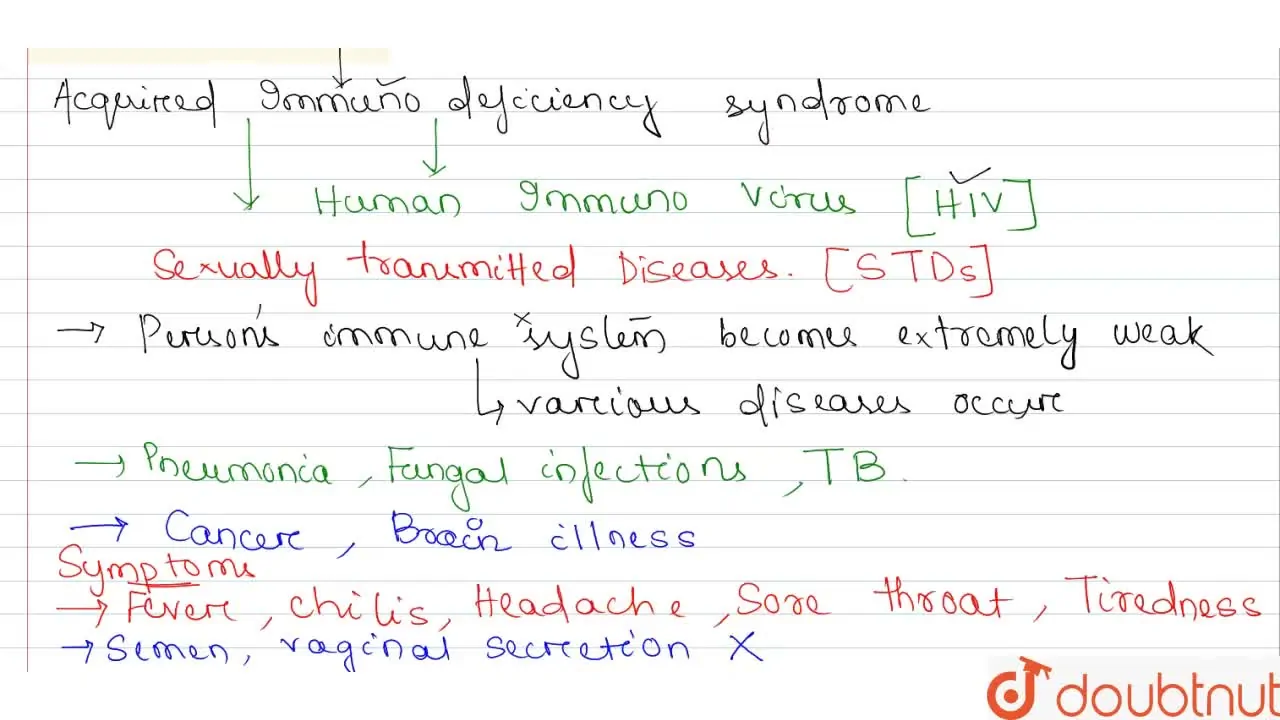 Acquired Immuno deficiency syndrome
Human Immuno Virus [HIV]
Sexually transmitted Diseases. [STDs]
→ Person's immune system becomes extremely weak
↳ various diseases occur
→ Pneumonia, Fungal infections, TB.
→ Cancer, Brain illness
Symptoms
→ Fever, chills, Headache, Sore throat, Tiredness
→ Semen, vaginal secretion X
doubtnut